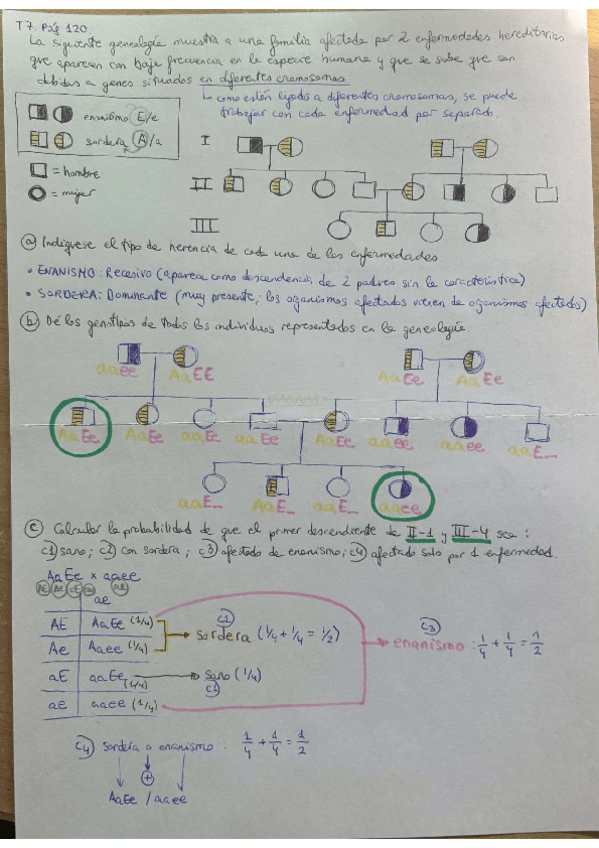 T7. Pág 120
La siguiente genealogía muestra a una familia afectada por 2 enfermedades hereditarias
que aparecen con baja frecuencia en la especie humana y que se sabe que son
debidas a genes situados en diferentes cromosomas.
↳ como están ligados a diferentes cromosomas, se puede
trabajar con cada enfermedad por separado.
enanismo E/e
sordera A/a
= hombre
= mujer
I
II
III
a) Indíquese el tipo de herencia de cada una de las enfermedades
• ENANISMO: Recesivo (aparece como descendencia de 2 padres sin la característica)
• SORDERA: Dominante (muy presente; los organismos afectados vienen de organismos afectados)
b) Dé los genotipos de todos los individuos representados en la genealogía.
aaee AaEE AaEe AaEe
AaEe AaEe aaEe aaEe AaEe aaee aaee aaE_
aaE_ AaE_ aaE_ aaee
c) Calcular la probabilidad de que el primer descendiente de II-1 y III-4 sea:
c1) sano; c2) con sordera; c3) afectado de enanismo; c4) afectado solo por 1 enfermedad.
AaEe x aaee
AE Ae aE ae ae
ae
AE AaEe (1/4)
Ae Aaee (1/4)
aE aaEe (1/4)
ae aaee (1/4)
c1
sordera (1/4 + 1/4 = 1/2)
sano (1/4)
c1
c3
enanismo: 1/4 + 1/4 = 1/2
c4) Sordera o enanismo: 1/4 + 1/4 = 1/2
+
AaEe / aaee